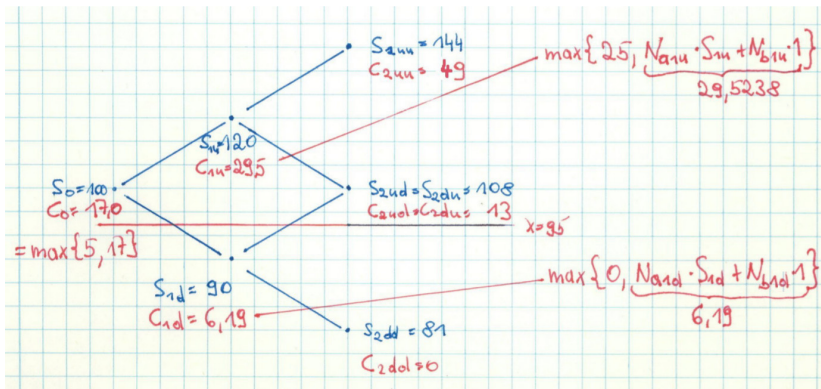 S₂uu = 144
C₂uu = 49
max{25, Na1u·S1u + Nb1u·1}
29,5238
S1u=120
C1u=29,5
S₀=100
C₀=17,0
=max{5,17}
S₂ud=S₂du=108
C₂ud=C₂du= 13
X=95
S1d = 90
C1d=6,19
max{0, Na1d·S1d + Nb1d·1}
6,19
S₂dd = 81
C₂dd=0